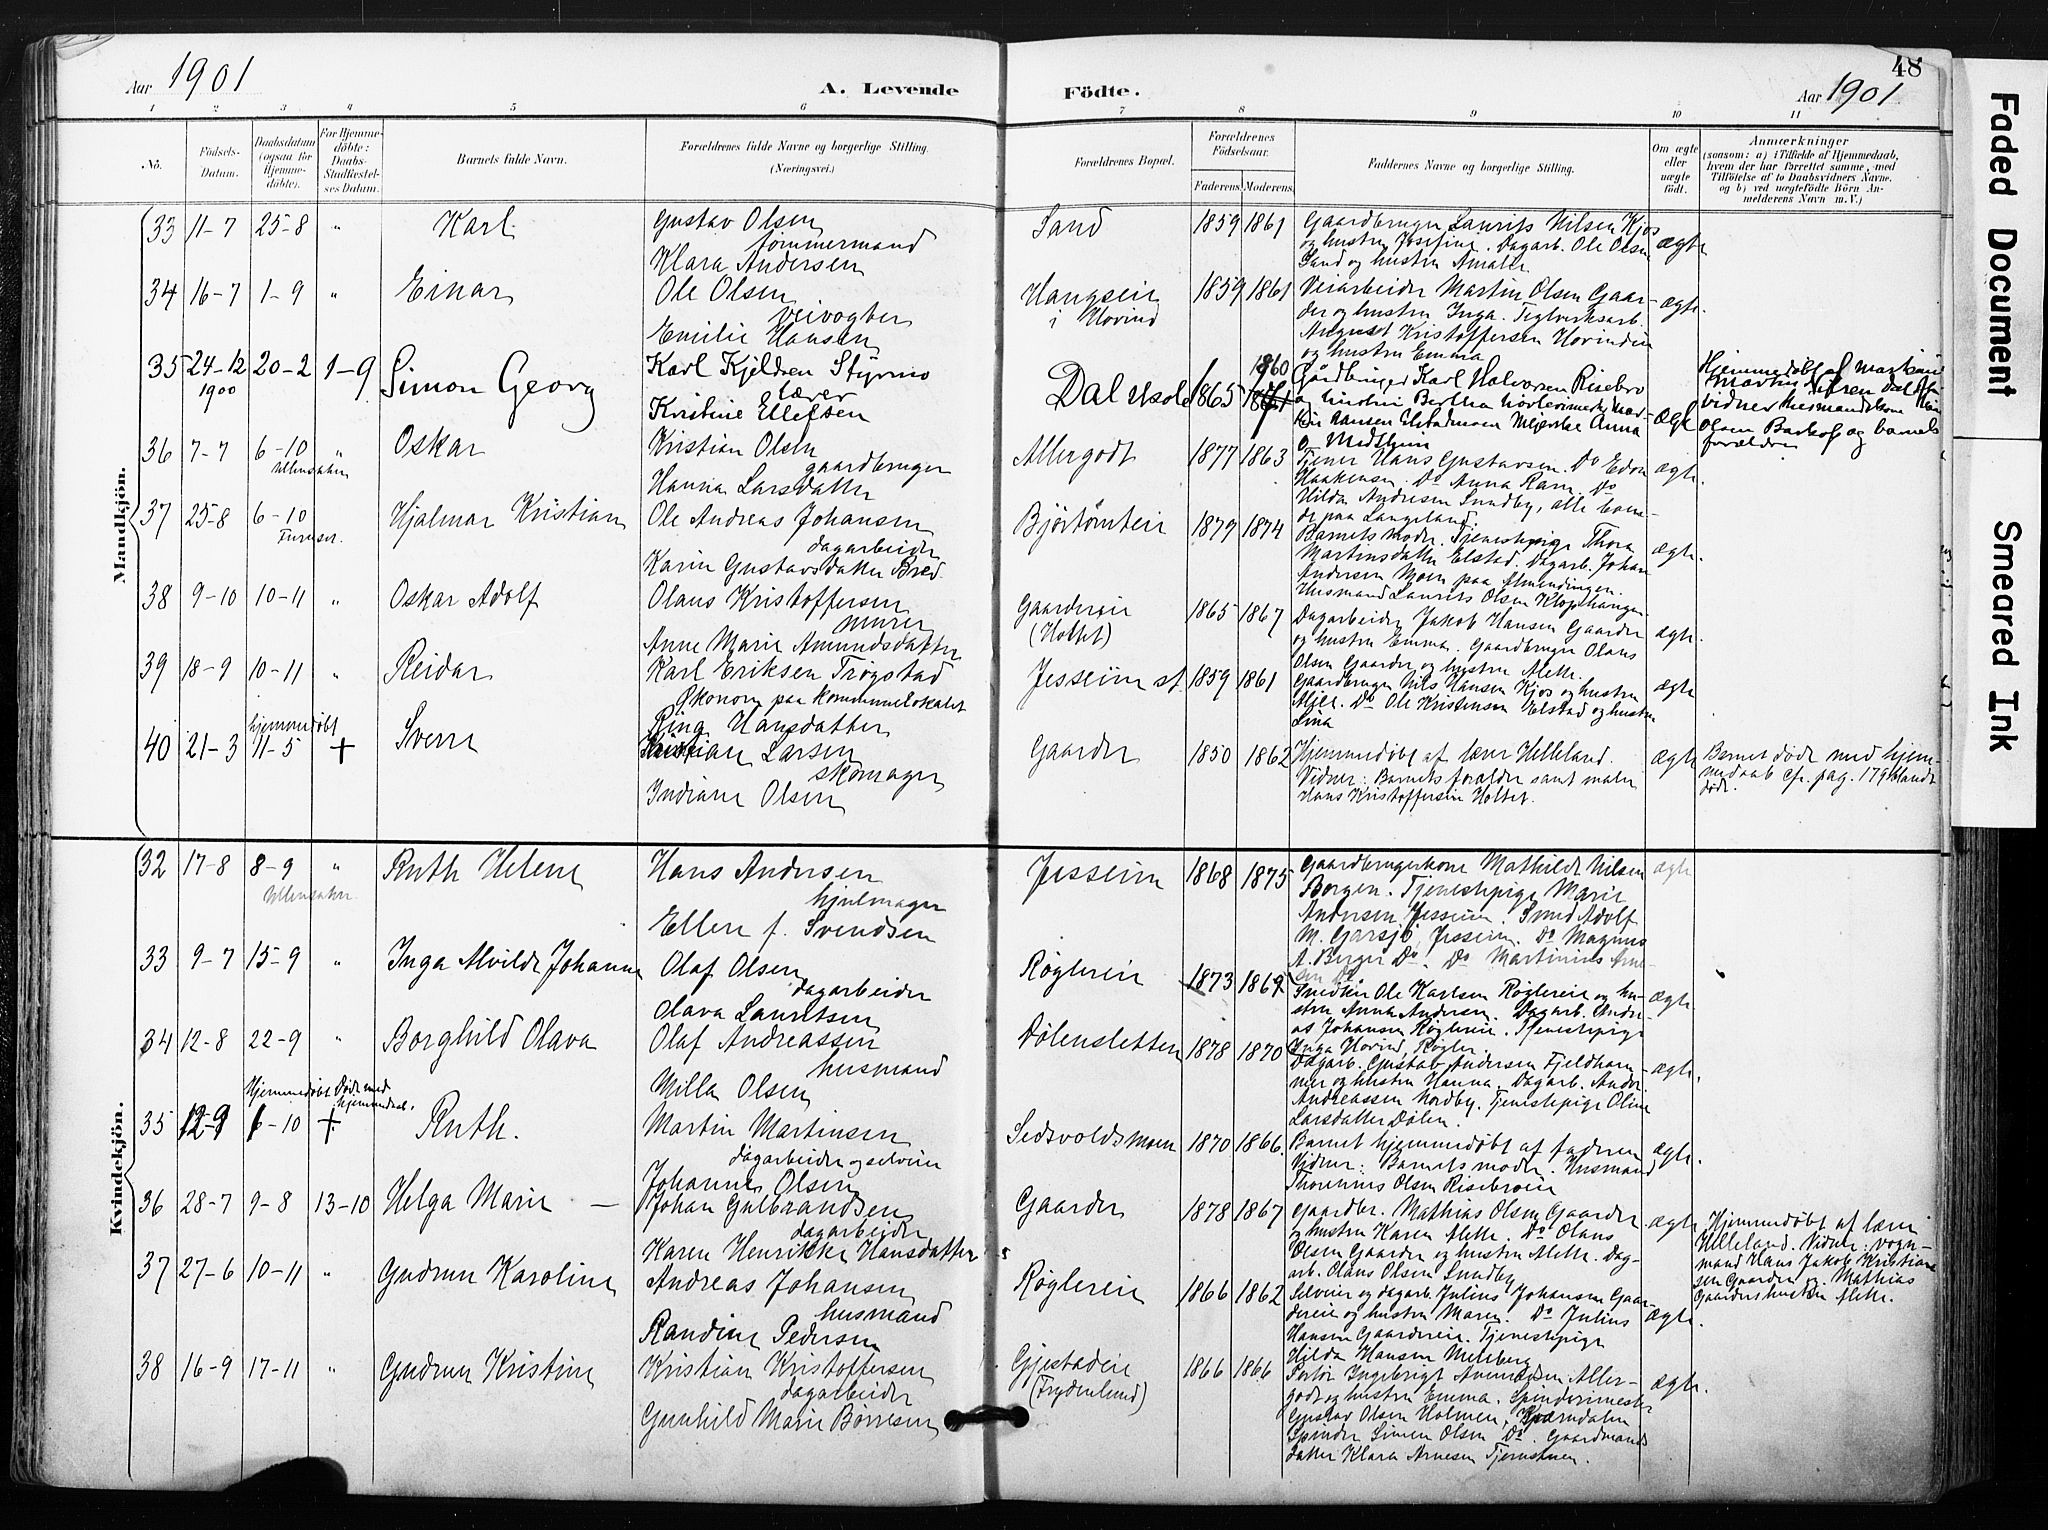 Aar 1901
A. Levende
Födte.
48
Aar 1901
1 2 3 4 5 6 7 8 9 10 11
No.
Födsels-Datum.
Daabsdatum (ogsaa for Hjemmedöbte).
For Hjemmedöbte: Daabs-Stadfæstelses Datum.
Barnets fulde Navn.
Forældrenes fulde Navne og borgerlige Stilling.
(Næringsvei.)
Forældrenes Bopæl.
Forældrenes Födselsaar.
Faderens. Moderens.
Faddernes Navne og borgerlige Stilling.
Om ægte eller uægte födt.
Anmærkninger
(saasom: a) i Tilfælde af Hjemmedaab, hvem der har forrettet samme, med Tilföielse af to Daabsvidners Navne, og b) ved uægtefödte Börn Anmelderens Navn m. V.)
Mandkjön.
33 11-7 25-8 " Karl
Gustav Olsen
tømmermand
Klara Andersen
Sand 1859 1861
Gaardbruger Laurits Nilsen Kjos
og hustru Josefine. Dagarb. Ole Olsen
Sand og hustru Amalie
ægte
34 16-7 1-9 " Einar
Ole Olsen
veivogter
Emilie Hansen
Hangseie
i Hovind
1859 1861
Veiarbeider Martin Olsen Gaar-
der og hustru Inga. Teglverksarb.
August Kristoffersen Hovindeie
og hustru Emma
ægte.
35 24-12 1900 20-2 1-9 Simon Georg
Karl Kjeldsen Styrmo
lærer
Kristine Ellefsen
Dal skole 1865 1860
Gårdbruger Karl Halvorsen Risebro
og hustru Bertha
Anna
ægte
Hjemmedøbt af
vidner
Olsen og barnets
forældre
36 7-7 6-10 " Oskar
Ullensaker
Kristian Olsen
gaardbruger
Hanna Larsdatter
Allergodt 1877 1863
Tjener Hans Gustavsen. Do Edv.
Haakensen. Do Anna Ravn. Do
Hilda Andresen Sundby, alle boen-
de paa Langeland.
ægte.
37 25-8 6-10 " Hjalmar Kristian
Furuset.
Ole Andreas Johansen
dagarbeider
Karin Gustavsdatter Bred.
Bjørtomteie 1879 1874
Barnets moder. Tjenestepige Thora
Martinsdatter Elstad. Dagarb. Johan
Andersen Moen paa Almendingen.
Husmand Laurits Olsen Klophangen
ægte.
38 9-10 10-11 " Oskar Adolf
Olaus Kristoffersen
murer
Anne Marie Amundsdatter
Gaardereie
(Holtet)
1865 1867
Dagarbeider Jakob Hansen Gaarder
og hustru Emma. Gaardbruger Olaus
Olsen Gaarder og hustru Alette.
ægte.
39 18-9 10-11 " Reidar
Karl Eriksen Trøgstad
Økonom paa kommunelokalet
Rina Hansdatter
Jesseim st 1859 1861
Gaardbruger Nils Hansen Kjos og hustru
Alette. Do Ole Kristensen Elstad og hustru
Lina
ægte
40 21-3 hjemmedøbt 11-5 + Sverre
Kristian Larsen
skomager
Indiane Olsen
Gaarder 1850 1862
Hjemmedøbt af lærer Helleland.
Vidner: Barnets forældre samt maler
Hans Kristoffersen Holtet.
ægte
Barnet døde med hjem-
medaab cfr. pag. 179 blandt
døde.
Kvindekjön.
32 17-8 8-9 " Ruth Helene
Ullensaker.
Hans Andersen
hjulmager
Ellen f. Svendsen
Jesseim 1868 1875
Gaardbrugerkone Mathilde Nilsen
Borgen. Tjenestepige Marie
Andersen Jesseim. Smed Adolf
M. Garsjø, Jesseim. Do Magnus
A. Berger Do. Do Martinius Arne-
sen Do.
ægte
33 9-7 15-9 " Inga Alvilde Johanne
Olaf Olsen
dagarbeider
Olava Lauritsen
Røglereie 1873 1869
Smedsv. Ole Karlsen Røglereie og hu-
stru Anna Andersen. Dagarb. Andre-
as Johansen Røglereie. Tjenestepige
Inga Hovind, Røgler
ægte.
34 12-8 22-9 " Borghild Olava
Olaf Andreassen
husmand
Milla Olsen
Dølensletten 1878 1870
Dagarb. Gustav Andersen Fjeldham-
mer og hustru Hanna. Dagarb. Andr.
Andreassen Nordby. Tjenestepige Oline
Larsdatter Dølen.
ægte.
35 12-9 Hjemmedøbt 6-10 Døde med hjemmedaab. + Ruth.
Martin Martinsen
dagarbeider og selveier
Johanne Olsen
Sedsvoldsmoen 1870 1866.
Barnet hjemmedøbt af faderen
Vidner: Barnets moder. Husmand
Thorennius Olsen Risebroeie
ægte.
36 28-7 9-8 13-10 Helga Marie —
Johan Gulbrandsen
dagarbeider
Karen Henrikke Hansdatter
Gaarder 1878 1867
Gaardbr. Mathias Olsen Gaarder
og hustru Karen Alette. Do Olaus
Olsen Gaarder og hustru Alette. Dag-
arb. Olaus Olsen Sundby
ægte
Hjemmedøbt af lærer
Helleland. Vidner: vogn-
mand Hans Jakob Kristian-
sen Gaarder og Mathias
Gaarders hustru Alette.
37 27-6 10-11 " Gudrun Karoline
Andreas Johansen
husmand
Randine Pedersen
Røglereie 1866 1862
Selveier og dagarb. Julius Johansen Gaar-
dereie og hustru Maren. Do Julius
Hansen Gaardereie. Tjenestepige
Hilda Hansen Melsberg
ægte.
38 16-9 17-11 " Gudrun Kristine
Kristian Kristoffersen
dagarbeider
Gunhild Marie Børresen
Gjestadeie
(Frydenlund)
1866 1866
Portør Ingebrigt Amundsen Aller-
godt og hustru Emma. Spinderimester
Gustav Olsen Holmen, Kværndalen
Spinder Simen Olsen Do. Gaardmands-
datter Klara Arnesen Tjernstuen.
ægte.
Faded Document
Smeared Ink